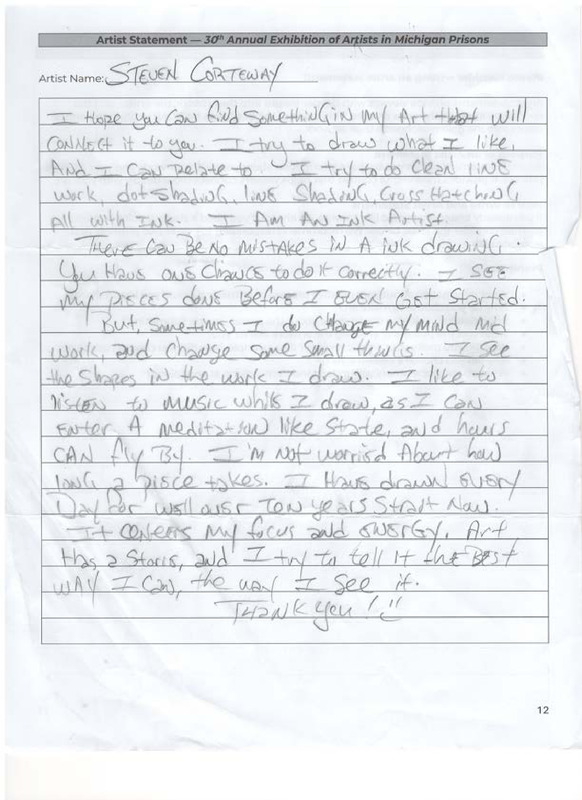 Artist Statement — 30th Annual Exhibition of Artists in Michigan Prisons
Artist Name: STEVEN CORTEWAY
I Hope you CAN find SomethinG iN My Art that will
CONNECt it to you. I try to draw what I like,
And I CAN Relate to. I try to do Clean line
work, dot Shading, line Shading, Cross Hatching
All with INK. I Am AN INK Artist
There CaN Be No Mistakes in A ink drawing.
You Have one Chance to do it Correctly. I SEE
my PIECES done Before I EVEN Get Started.
But, Sometimes I do Change my mind mid
work, and Change Some Small things. I See
the Shapes in the work I draw. I like to
listen to music while I draw, as I CaN
Enter A meditation like State, and hours
CAN fly By. I'm Not worried About how
long a piece takes. I Have drawn EVERY
Day for well over Ten years Strait Now.
It centers My focus and ENERGY. Art
Has a Storie, and I try to tell it the BEST
WAY I CaN, the way I See it.
THANK you! :)
12